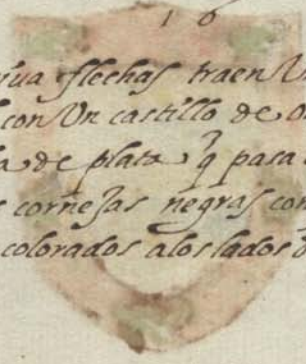 16
rúa flechas traen U
con Un castillo de o
a de plata q̃ pasa
cornejas negras con
colorados alos lados d